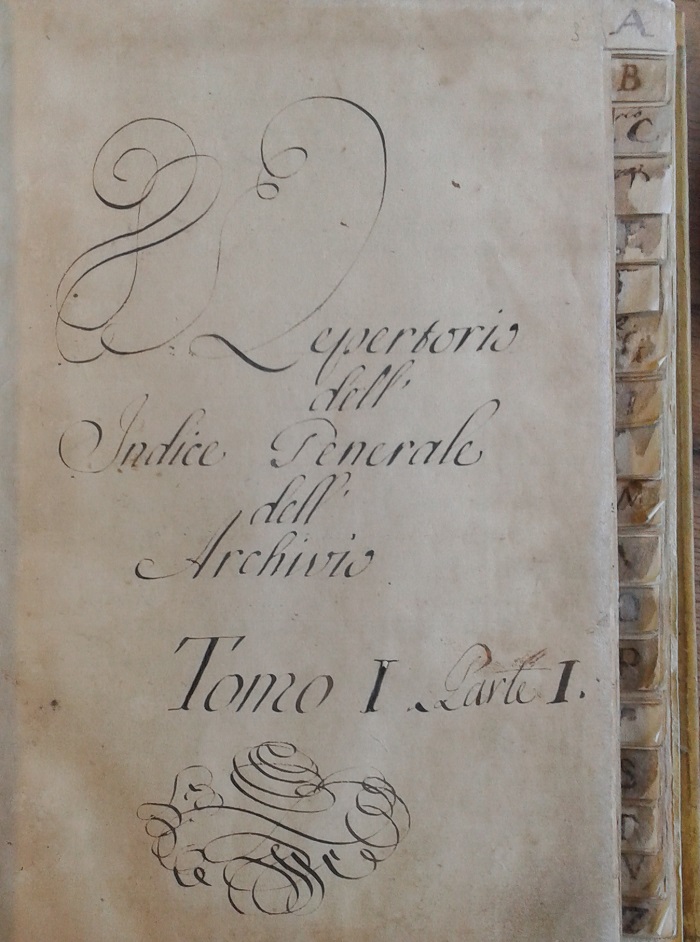 Repertorio
dell'
Indice Generale
dell'
Archivio
Tomo I. Parte I.
A
B
C
I
N
O
P
S
V
Z